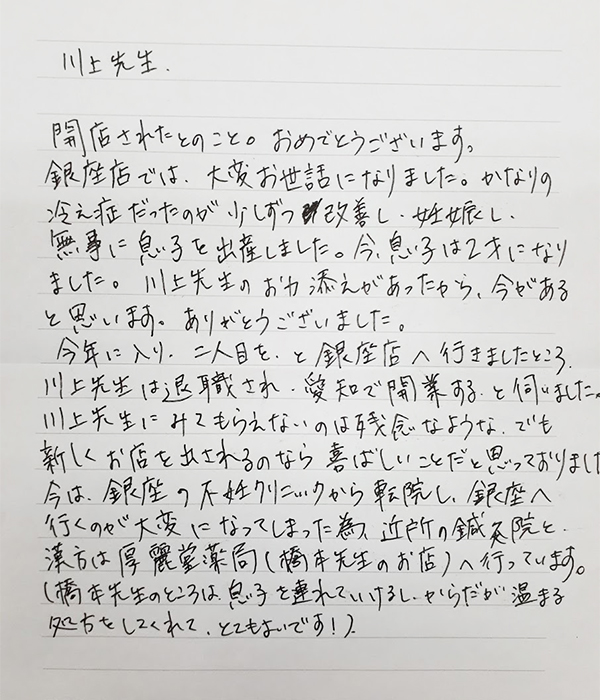 川上先生.
開店されたとのこと。おめでとうございます。
銀座店では、大変お世話になりました。かなりの
冷え症だったのが少しずつ改善し、妊娠し、
無事に息子を出産しました。今、息子は2才になり
ました。川上先生のお力添えがあったから、今がある
と思います。ありがとうございました。
今年に入り、二人目を、と銀座店へ行きましたところ、
川上先生は退職され、愛知で開業する、と伺いました。
川上先生にみてもらえないのは残念なような、でも
新しくお店を出されるのなら喜ばしいことだと思っておりまし
今は、銀座の不妊クリニックから転院し、銀座へ
行くのが大変になってしまった為、近所の鍼灸院と、
漢方は厚麗堂薬局(橋本先生のお店)へ行っています。
(橋本先生のところは、息子を連れていけるし、からだが温まる
処方をしてくれて、とてもよいです!)